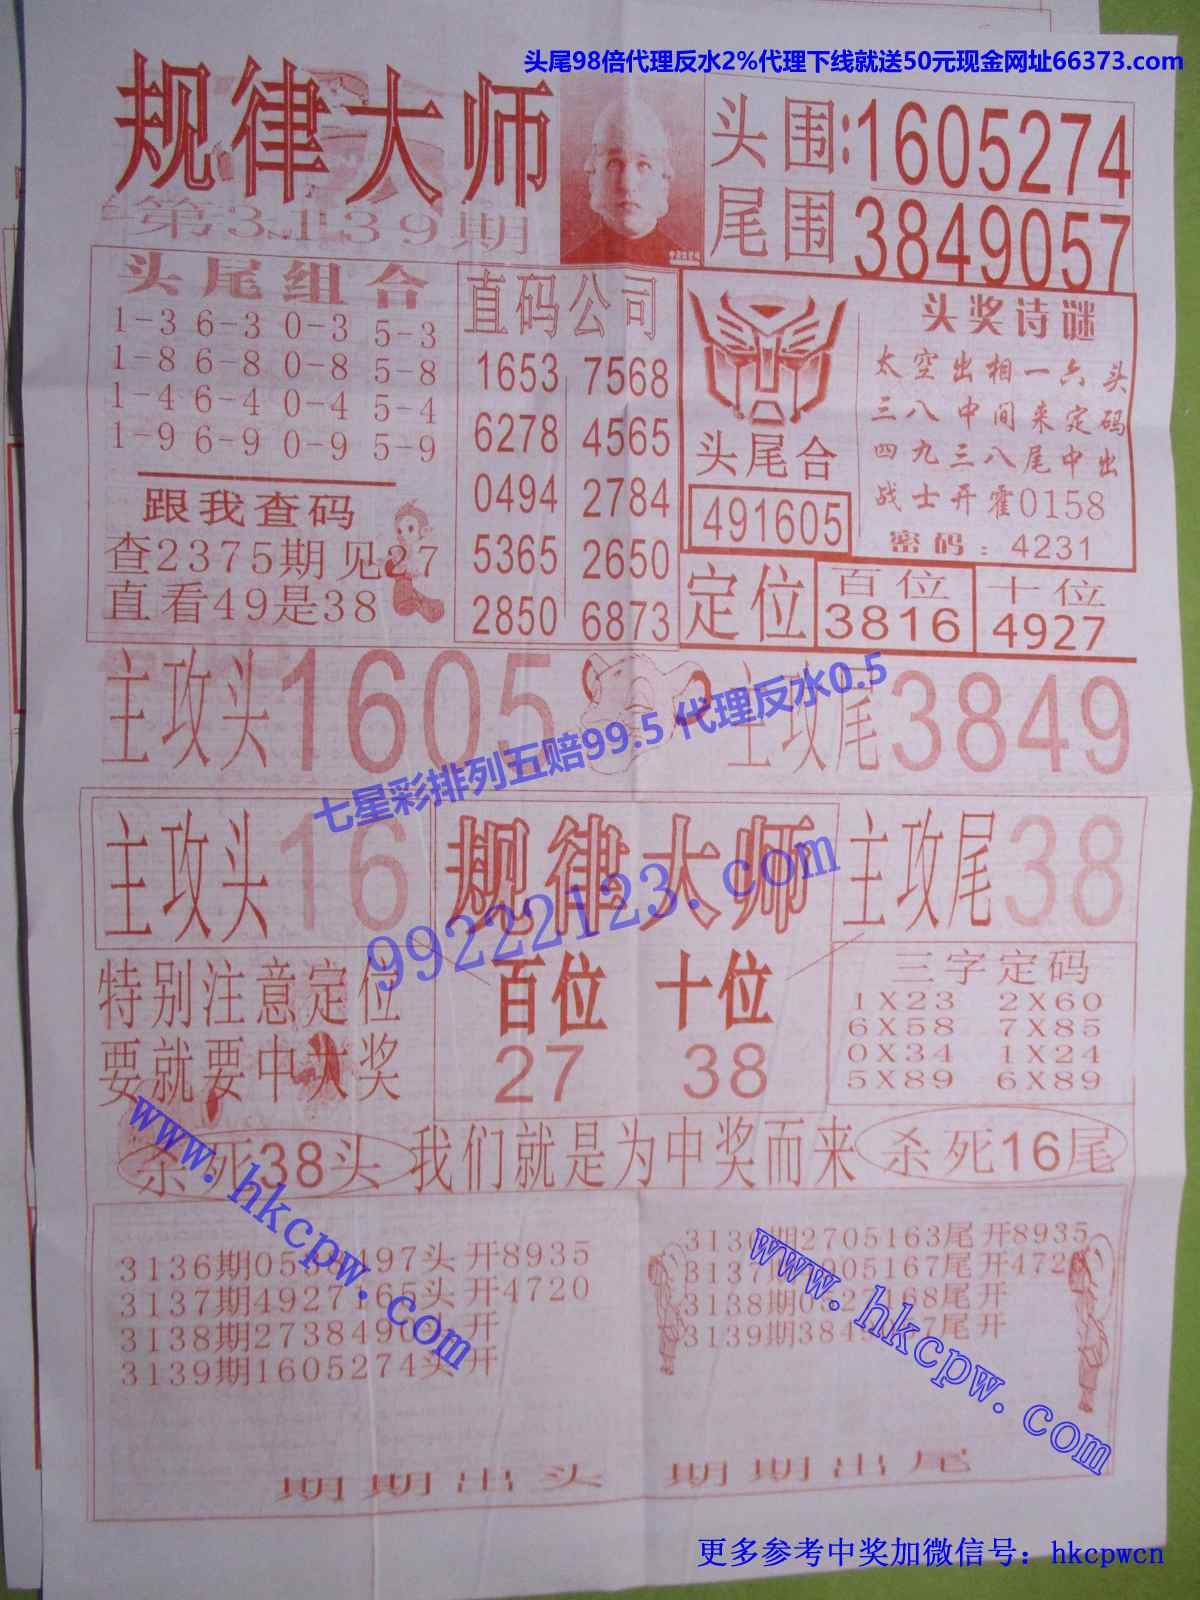 头尾98倍代理反水2%代理下线就送50元现金网址66373.com
规律大师
第3139期
头围:1605274
尾围 3849057
头尾组合
1-3 6-3 0-3 5-3
1-8 6-8 0-8 5-8
1-4 6-4 0-4 5-4
1-9 6-9 0-9 5-9
跟我查码
查2375期见27
直看49是38
直码公司
1653 7568
6278 4565
0494 2784
5365 2650
2850 6873
头尾合
491605
头奖诗谜
太空出相一六头
三八中间来定码
四九三八尾中出
战士开霍0158
密码:4231
定位
百位
3816
十位
4927
主攻头1605
主攻尾3849
七星彩排列五赔99.5 代理反水0.5
主攻头16
规律大师
主攻尾38
99222123.com
特别注意定位
要就要中大奖
百位 十位
27 38
三字定码
1X23 2X60
6X58 7X85
0X34 1X24
5X89 6X89
杀死38头
我们就是为中奖而来
杀死16尾
www.hkcpw.com
www.hkcpw.com
3136期05 497头开8935
3137期4927165头开4720
3138期273849 开
3139期1605274头开
313 2705163尾开8935
3137 905167尾开472
3138期0527168尾开
3139期384 7尾开
期期出头 期期出尾
更多参考中奖加微信号：hkcpwcn